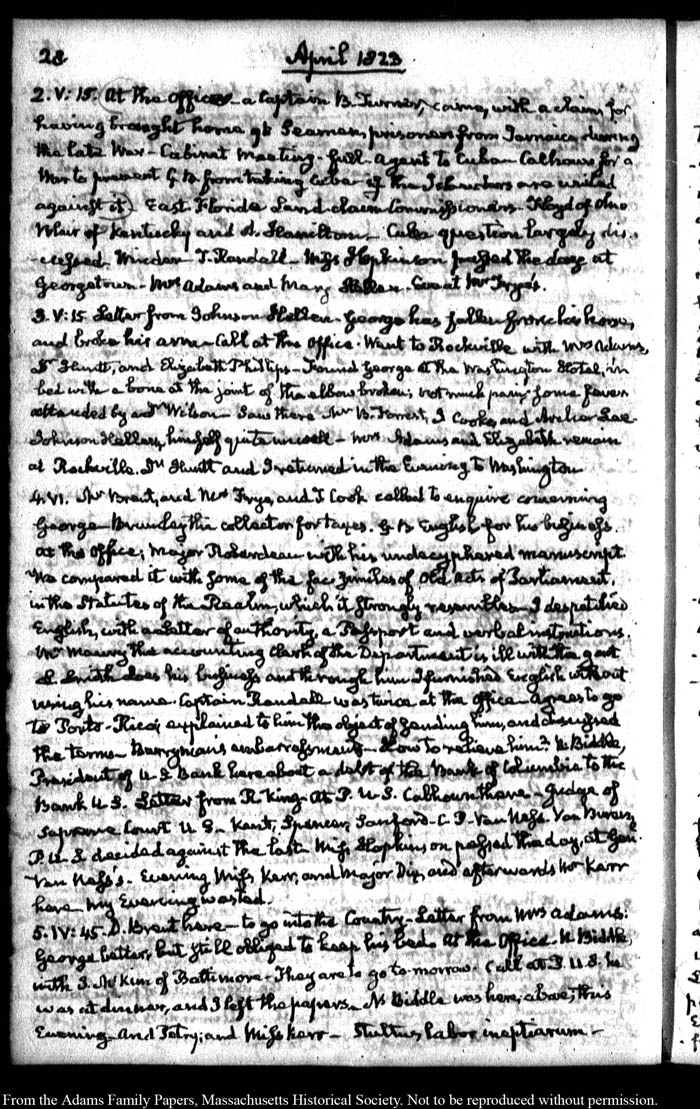 28 April 1823
2. V: 15. At the office a Captain B. Turner, came, with a claim for
having brought home 96 Seamen, prisoners from Jamaica during
the late War - Cabinet Meeting - full. Agent to Cuba. Calhoun for a
War to prevent G B from taking Cuba if the Islanders are united
against it. East Florida Land claim Commissioners. Floyd of Ohio
Blair of Kentucky and A. Hamilton - Cuba question largely dis-
-cussed. T. Randall - Miss Hopkinson passed the day at
Georgetown - Mrs Adams and Mary Hellen. Even. at Mr Frye's.
3. V: 15 Letter from Johnson Hellen - George has fallen from his horse,
and broke his arm - Call at the Office. Went to Rockville with Mrs Adams,
Dr Huntt, and Elizabeth Phillips - Found George at the Washington Hotel, in
bed with a bone at the joint of the elbow broken; not much pain; some fever
attended by a Dr Wilson - Saw there Mr B. Forrest, I Cooke, and Lee
Johnson Hellen, himself quite unwell - Mrs Adams and Elizabeth remain
at Rockville. Dr Huntt and I returned in the Evening to Washington
4. VI. Mr Brent, and Mrs Frye, and I Cook called to enquire concerning
George - Brumley the collector for taxes. G B English for his business.
At the office; Major Roberdeau with his undecyphered manuscript
We compared it with some of the fac similes of Old Acts of Parliament,
in the Statutes of the Realm, which it strongly resembles - I despatched
English, with a letter of authority, a Passport and verbal instructions.
Mr Maury the accounting Clerk of the Department is ill with the gout
Smith does his business and through him I furnished English without
using his name. Captain Randall was twice at the office - agrees to go
to Porto-Rico; explained to him the object of sending him, and discussed
the terms - Berryman's embarrassment - How to relieve him? N. Biddle,
President of U. S. Bank here about a debt of the Bank of Columbia to the
Bank U. S. Letter from R King. At P. U. S. Calhoun there - Judge of
Supreme Court U. S. - Kent, Spencer, Sanford - C. P. Van Ness. Van Buren,
P. U. S. decided against the last. Miss Hopkinson passed the day, at Genl
Van Ness's. Evening Miss Kerr, and Major Dix, and afterwards Mr Kerr
here. My Evening wasted.
5. IV: 45. D. Brent here - to go into the Country - Letter from Mrs Adams:
George better, but still obliged to keep his bed. At the Office - N Biddle,
with I. McKim of Baltimore - They are to go to-morrow. Call at P. U. S. he
was at dinner, and I left the papers. N Biddle was here, above, this
Evening - And Petry; and Miss Kerr - Stultus labor ineptiarum -
From the Adams Family Papers, Massachusetts Historical Society. Not to be reproduced without permission.